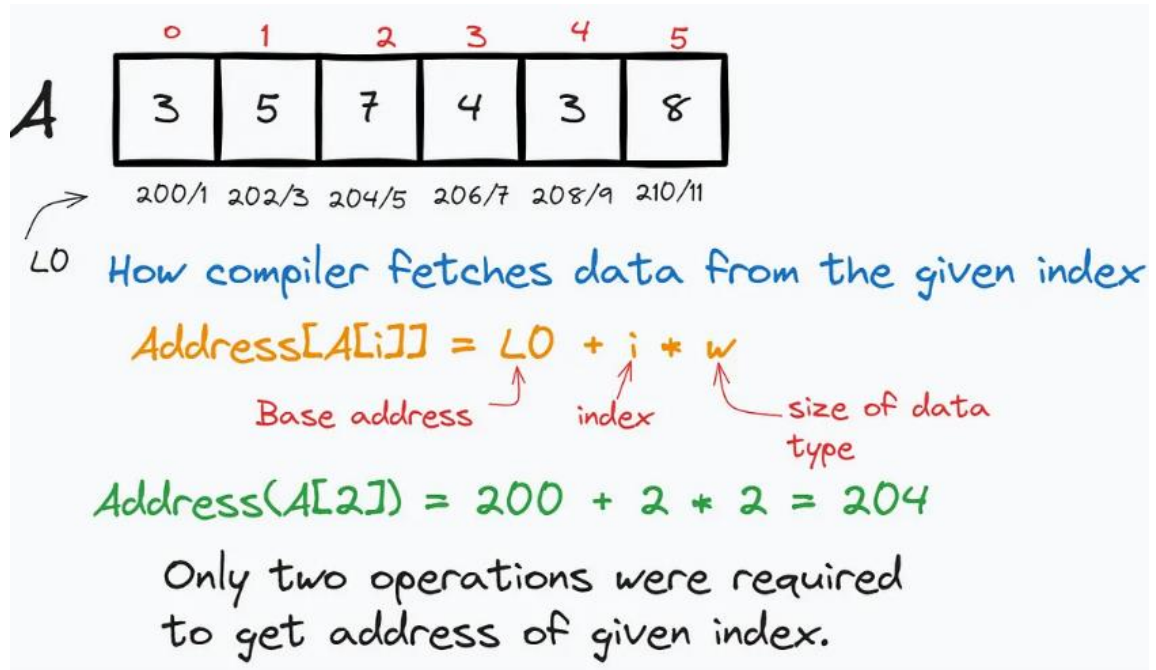 0 1 2 3 4 5
A 3 5 7 4 3 8
200/1 202/3 204/5 206/7 208/9 210/11
LO
How compiler fetches data from the given index
Address[A[i]] = LO + i * w
Base address index size of data
type
Address(A[2]) = 200 + 2 * 2 = 204
Only two operations were required
to get address of given index.